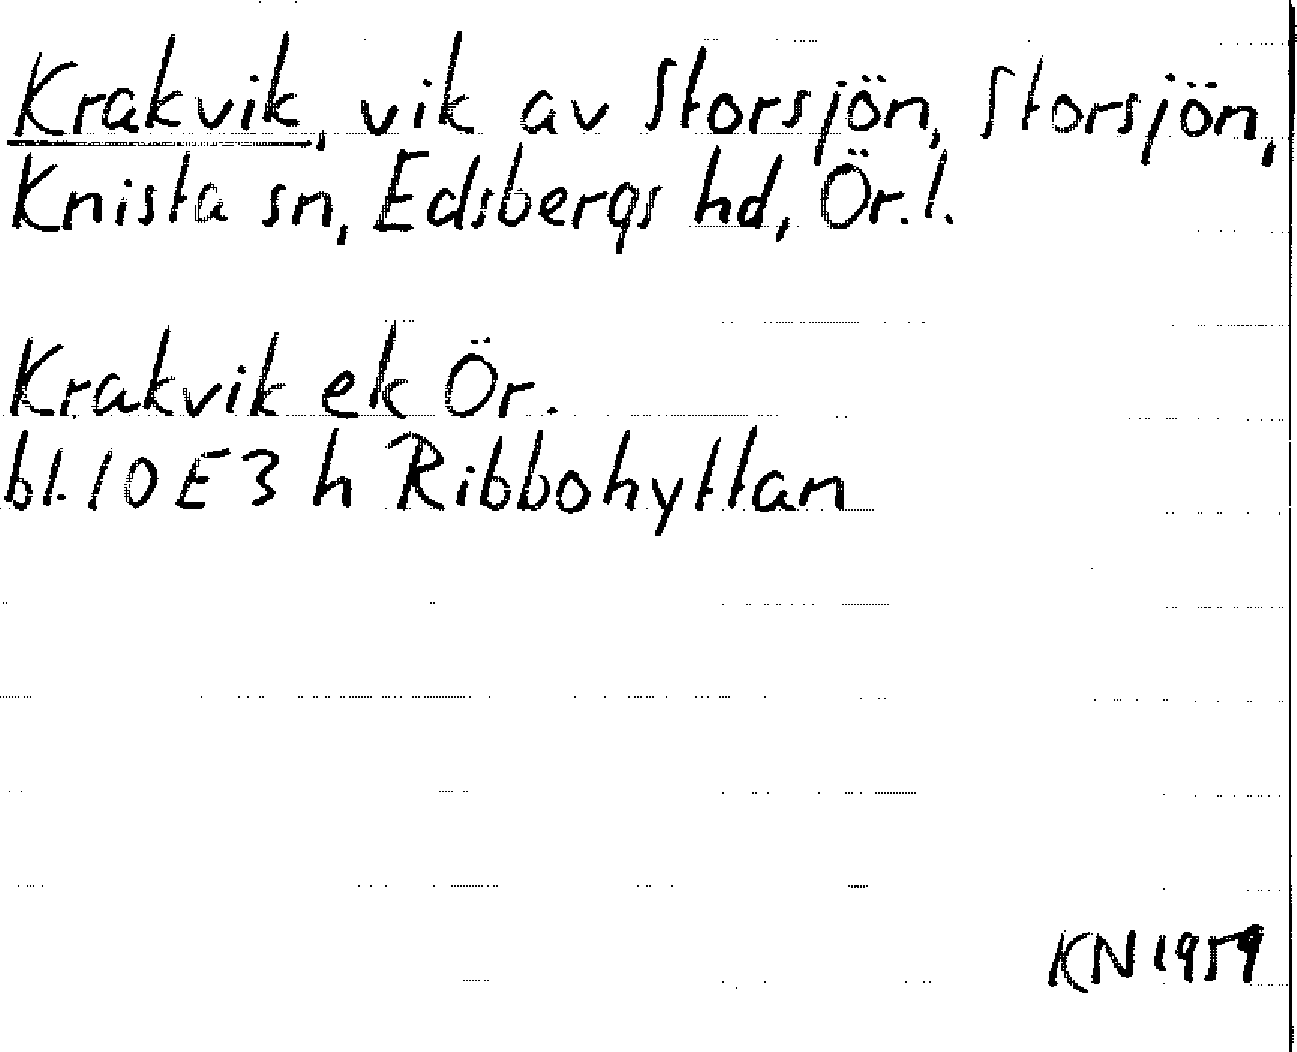 Krakvik, vik av Storsjön, Storsjön,
Knista sn, Edsbergs hd, Ör. l.
Krakvik ek Ör.
bl. 10 E 3 h Ribbohyttan
KN 1959